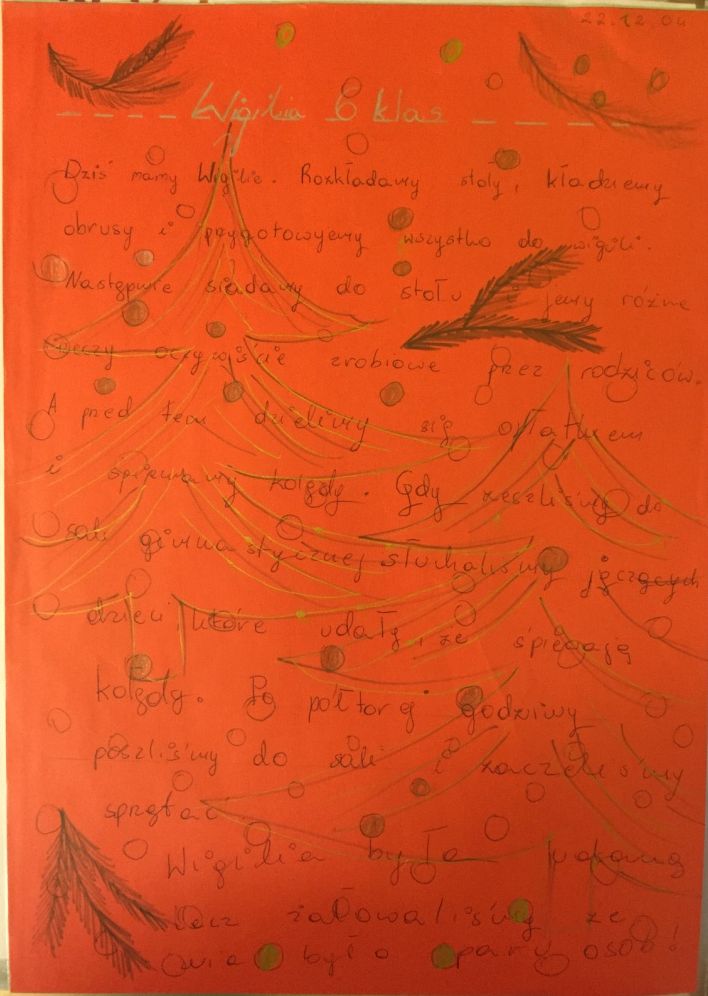 22.12.04
Wigilia 6 klas
Dziś mamy Wigilie. Rozkładamy stoły, kładziemy
obrusy i przygotowyjemy wszystko do wigili.
Następnie siadamy do stołu i jemy różne
rzeczy oczywiście zrobione przez rodziców.
A przed tem dzielimy się opłatkiem
i śpiewamy kolędy. Gdy zeszliśmy do
sali gimnastycznej słuchaliśmy jęczących
dzieci, które udały, że śpiegają
kolędy. Po półtorej godziny
poszliśmy do sali i zaczeliśmy
sprzątać
Wigilia była udana
lecz żałowaliśmy że
nie było pary osób!